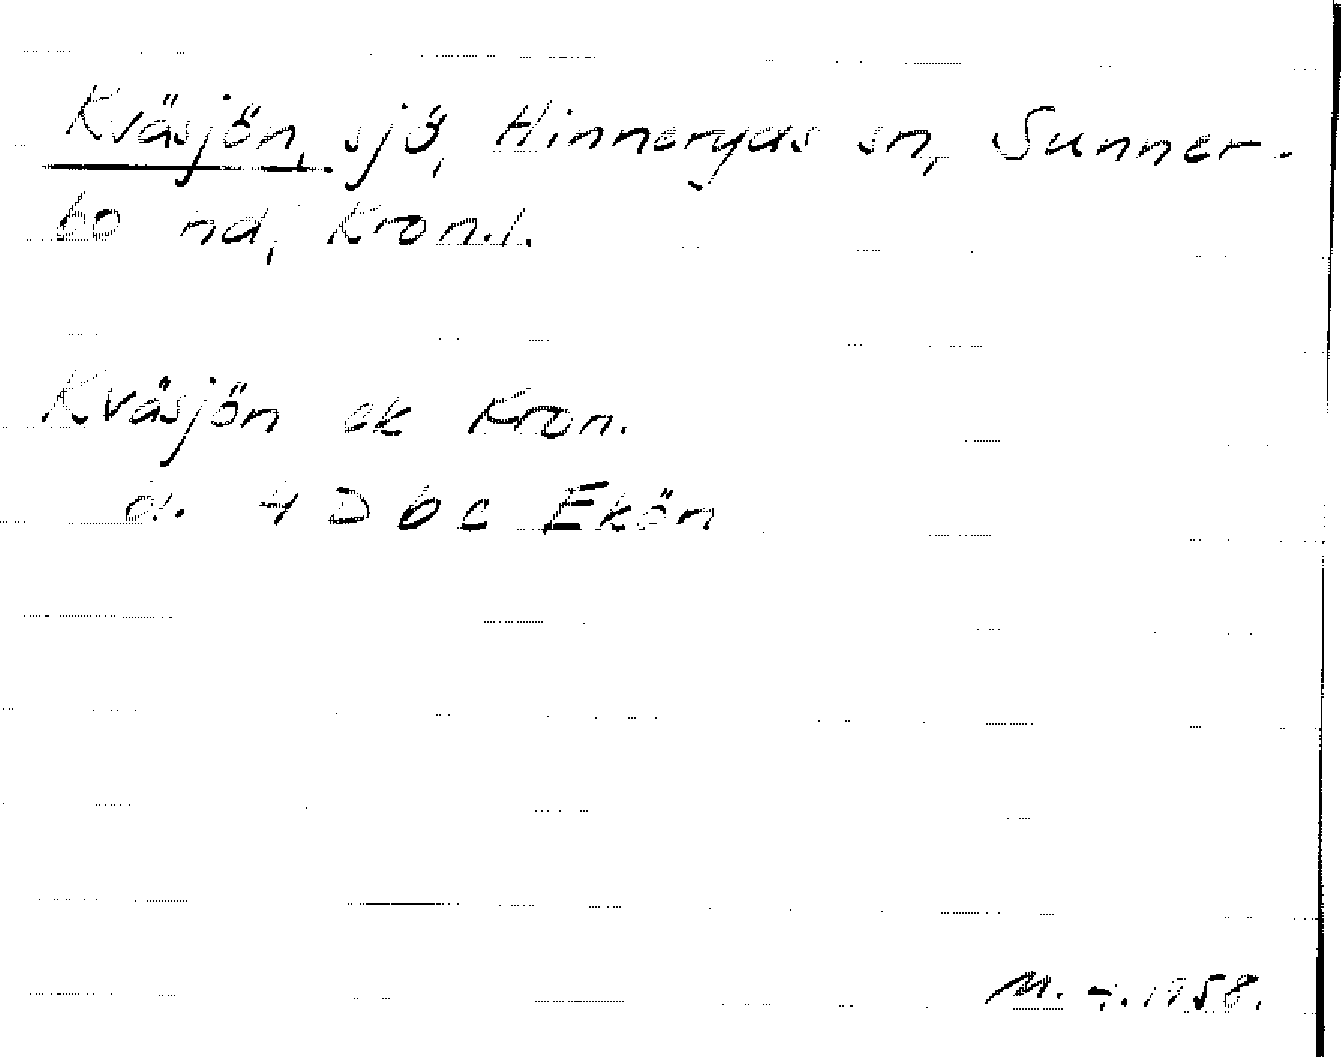 Kväsjön, sjö, Hinneryds sn, Sunner-
bo hd, Kron.l.
Kväsjön ek Kron.
d. 4 D b c Ekön
M. 1958.